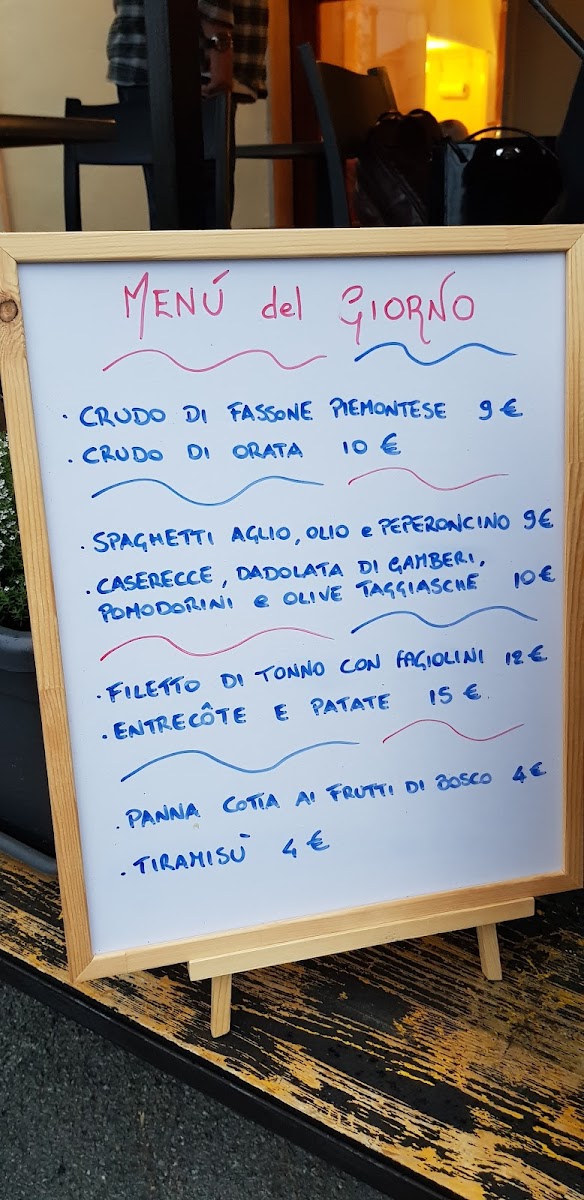 MENÚ del GIORNO
· CRUDO DI FASSONE PIEMONTESE 9 €
· CRUDO DI ORATA 10 €
· SPAGHETTI AGLIO, OLIO e PEPERONCINO 9€
· CASERECCE, DADOLATA DI GAMBERI,
POMODORINI e OLIVE TAGGIASCHE 10€
· FILETTO DI TONNO CON FAGIOLINI 12€
· ENTRECÔTE E PATATE 15 €
· PANNA COTTA AI FRUTTI DI BOSCO 4€
· TIRAMISÙ 4 €